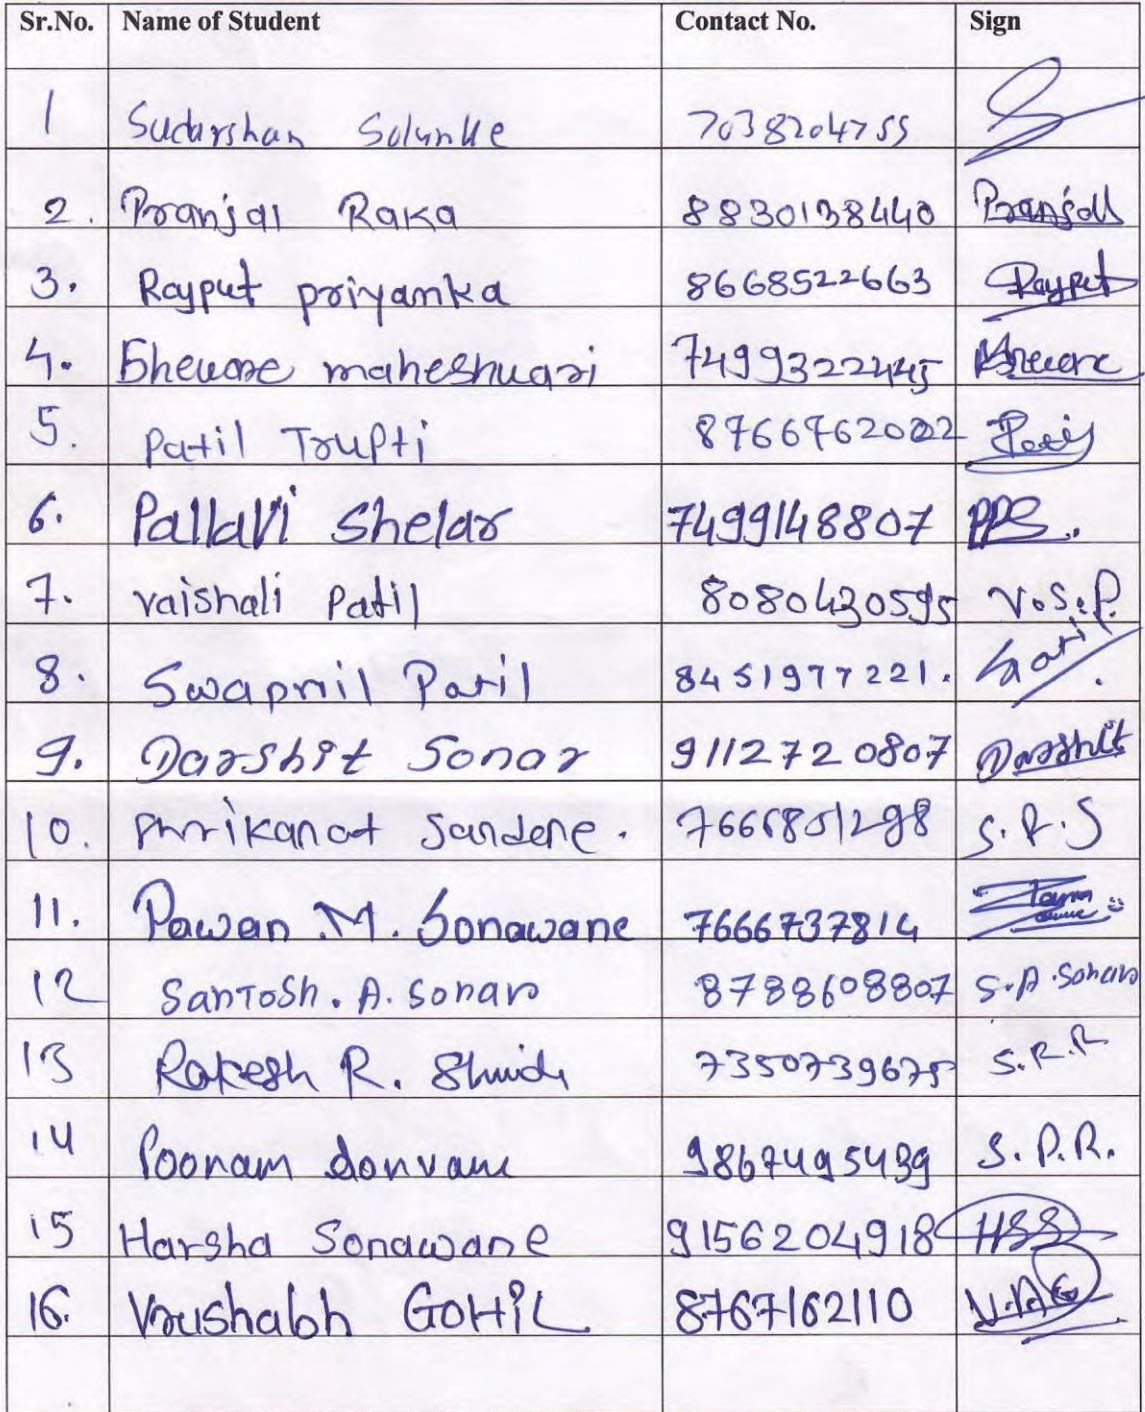 Sr.No. Name of Student Contact No. Sign
1 Sudarshan Solunke 7038204755
2. Pranjal Raka 8830138440 Pranjal
3. Rajput priyanka 8668522663 Rajput
4. Bhevare maheshwari 7499322445
5. Patil Trupti 8766762022 Patil
6. Pallavi Shelar 7499148807 PPS.
7. vaishali Patil 8080430595 V.S.P.
8. Swapnil Patil 8451977221.
9. Darshit Sonar 9112720807 Darshit
10. Sandene. 7666851298 S.R.S
11. Pawan M. Sonawane 7666737814
12 SanToSh. A. Sonar 8788608807 S.A.Sonar
13 Rakesh R. 7350739675 S.R.R
14 Poonam 9867495439 S.P.R.
15 Harsha Sonawane 9156204918 HSS
16. Vrushabh GOHIL 8767162110